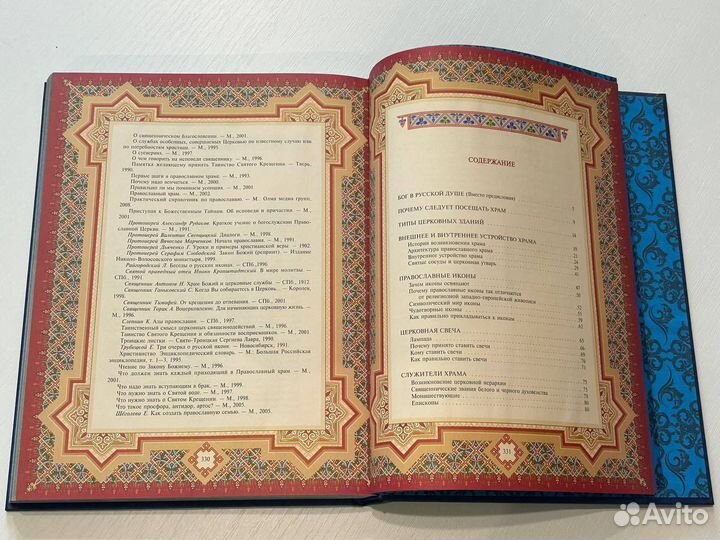 О священническом Благословении. — М., 2001
О службах особенных, совершаемых Церковью по известному случаю или
по потребностям христиан. — М., 1995
О суевериях. — М., 1997
О чем говорить на исповеди священнику — М., 1996.
Памятка желающему принять Таинство Святого Крещения — Тверь,
1990.
Первые шаги в православном храме. — М., 1993.
Почему надо венчаться. — М., 2000.
Правильно ли мы поминаем усопших. — М., 2001
Православный храм. — М., 2002
Практический справочник по православию. — М., Олма медиа групп,
2008.
Приступая к Божественным Тайнам. Об исповеди и причастии. — М.,
2001
Протоиерей Александр Рудаков. Краткое учение о богослужении Право-
славной Церкви. — М., 1991.
Протоиерей Валентин Свенцицкий. Диалоги. — М., 1998.
Протоиерей Вячеслав Марченков. Начала православия. — М., 1991.
Протоиерей Дьяченко Г. Уроки и примеры христианской веры — 1902.
Протоиерей Серафим Слободской Закон Божий (репринт). — Издание
Николо-Волосовского монастыря, 1999.
Райгородский Л. Беседы о русских иконах. — СПб.,1996.
Святой праведный отец Иоанн Кронштадтский. В мире молитвы. —
СПб., 1991.
Священник Антонов Н. Храм Божий и церковные службы. — СПб., 1912.
Священник Ганьковский С. Когда Вы собираетесь в Церковь. — Королев,
1998.
Священник Тимофей. От крещения до отпевания. — СПб., 2001.
Священник Торик А. Воцерковление. Для начинающих церковную жизнь. —
М., 1996.
Слепинин К. Азы православия. — СПб., 1997.
Таинственный смысл церковных священнодействий. — М., 1996.
Таинство Святого Крещения и обязанности восприемников. — М., 2001.
Троицкие листки — Свято-Троицкая Сергиева Лавра, 1990.
Трубецкой Е. Три очерка о русской иконе. — Новосибирск, 1991.
Христианство Энциклопедический словарь. — М.: Большая Российская
энциклопедия, т. 1—3, 1995.
Чтение по Закону Божиему. — М., 1996.
Что должен знать каждый приходящий в Православный храм. — М.,
2001.
Что надо знать вступающим в брак. — М., 1999.
Что нужно знать о Святой воде. — М., 1997.
Что нужно знать о Святом Крещении. — М., 1998.
Что такое просфора, антидор, артос? — М., 2005.
Щёголева Е. Как создать православную семью. — М., 2005.
330
СОДЕРЖАНИЕ
БОГ В РУССКОЙ ДУШЕ (Вместо предисловия)
ПОЧЕМУ СЛЕДУЕТ ПОСЕЩАТЬ ХРАМ
ТИПЫ ЦЕРКОВНЫХ ЗДАНИЙ
ВНЕШНЕЕ И ВНУТРЕННЕЕ УСТРОЙСТВО ХРАМА
История возникновения храма
Архитектура православного храма
Внутреннее устройство храма
Святые сосуды и церковная утварь
ПРАВОСЛАВНЫЕ ИКОНЫ
Зачем иконы освящают
Почему православные иконы так отличаются
от религиозной западно-европейской живописи
Символический мир иконы
Чудотворные иконы
Как правильно прикладываться к иконам
ЦЕРКОВНАЯ СВЕЧА
Лампада
Почему принято ставить свечи
Кому ставить свечи
Как правильно ставить свечи
СЛУЖИТЕЛИ ХРАМА
Возникновение церковной иерархии
Священнические звания белого и черного духовенства
Монашествующие
Епископы
331
Avito